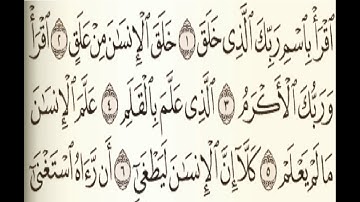 ٱقْرَأْ بِٱسْمِ رَبِّكَ ٱلَّذِى خَلَقَ ١ خَلَقَ ٱلْإِنسَٰنَ مِنْ عَلَقٍ ٢ ٱقْرَأْ
وَرَبُّكَ ٱلْأَكْرَمُ ٣ ٱلَّذِى عَلَّمَ بِٱلْقَلَمِ ٤ عَلَّمَ ٱلْإِنسَٰنَ
مَا لَمْ يَعْلَمْ ٥ كَلَّآ إِنَّ ٱلْإِنسَٰنَ لَيَطْغَىٰٓ ٦ أَن رَّءَاهُ ٱسْتَغْنَىٰٓ